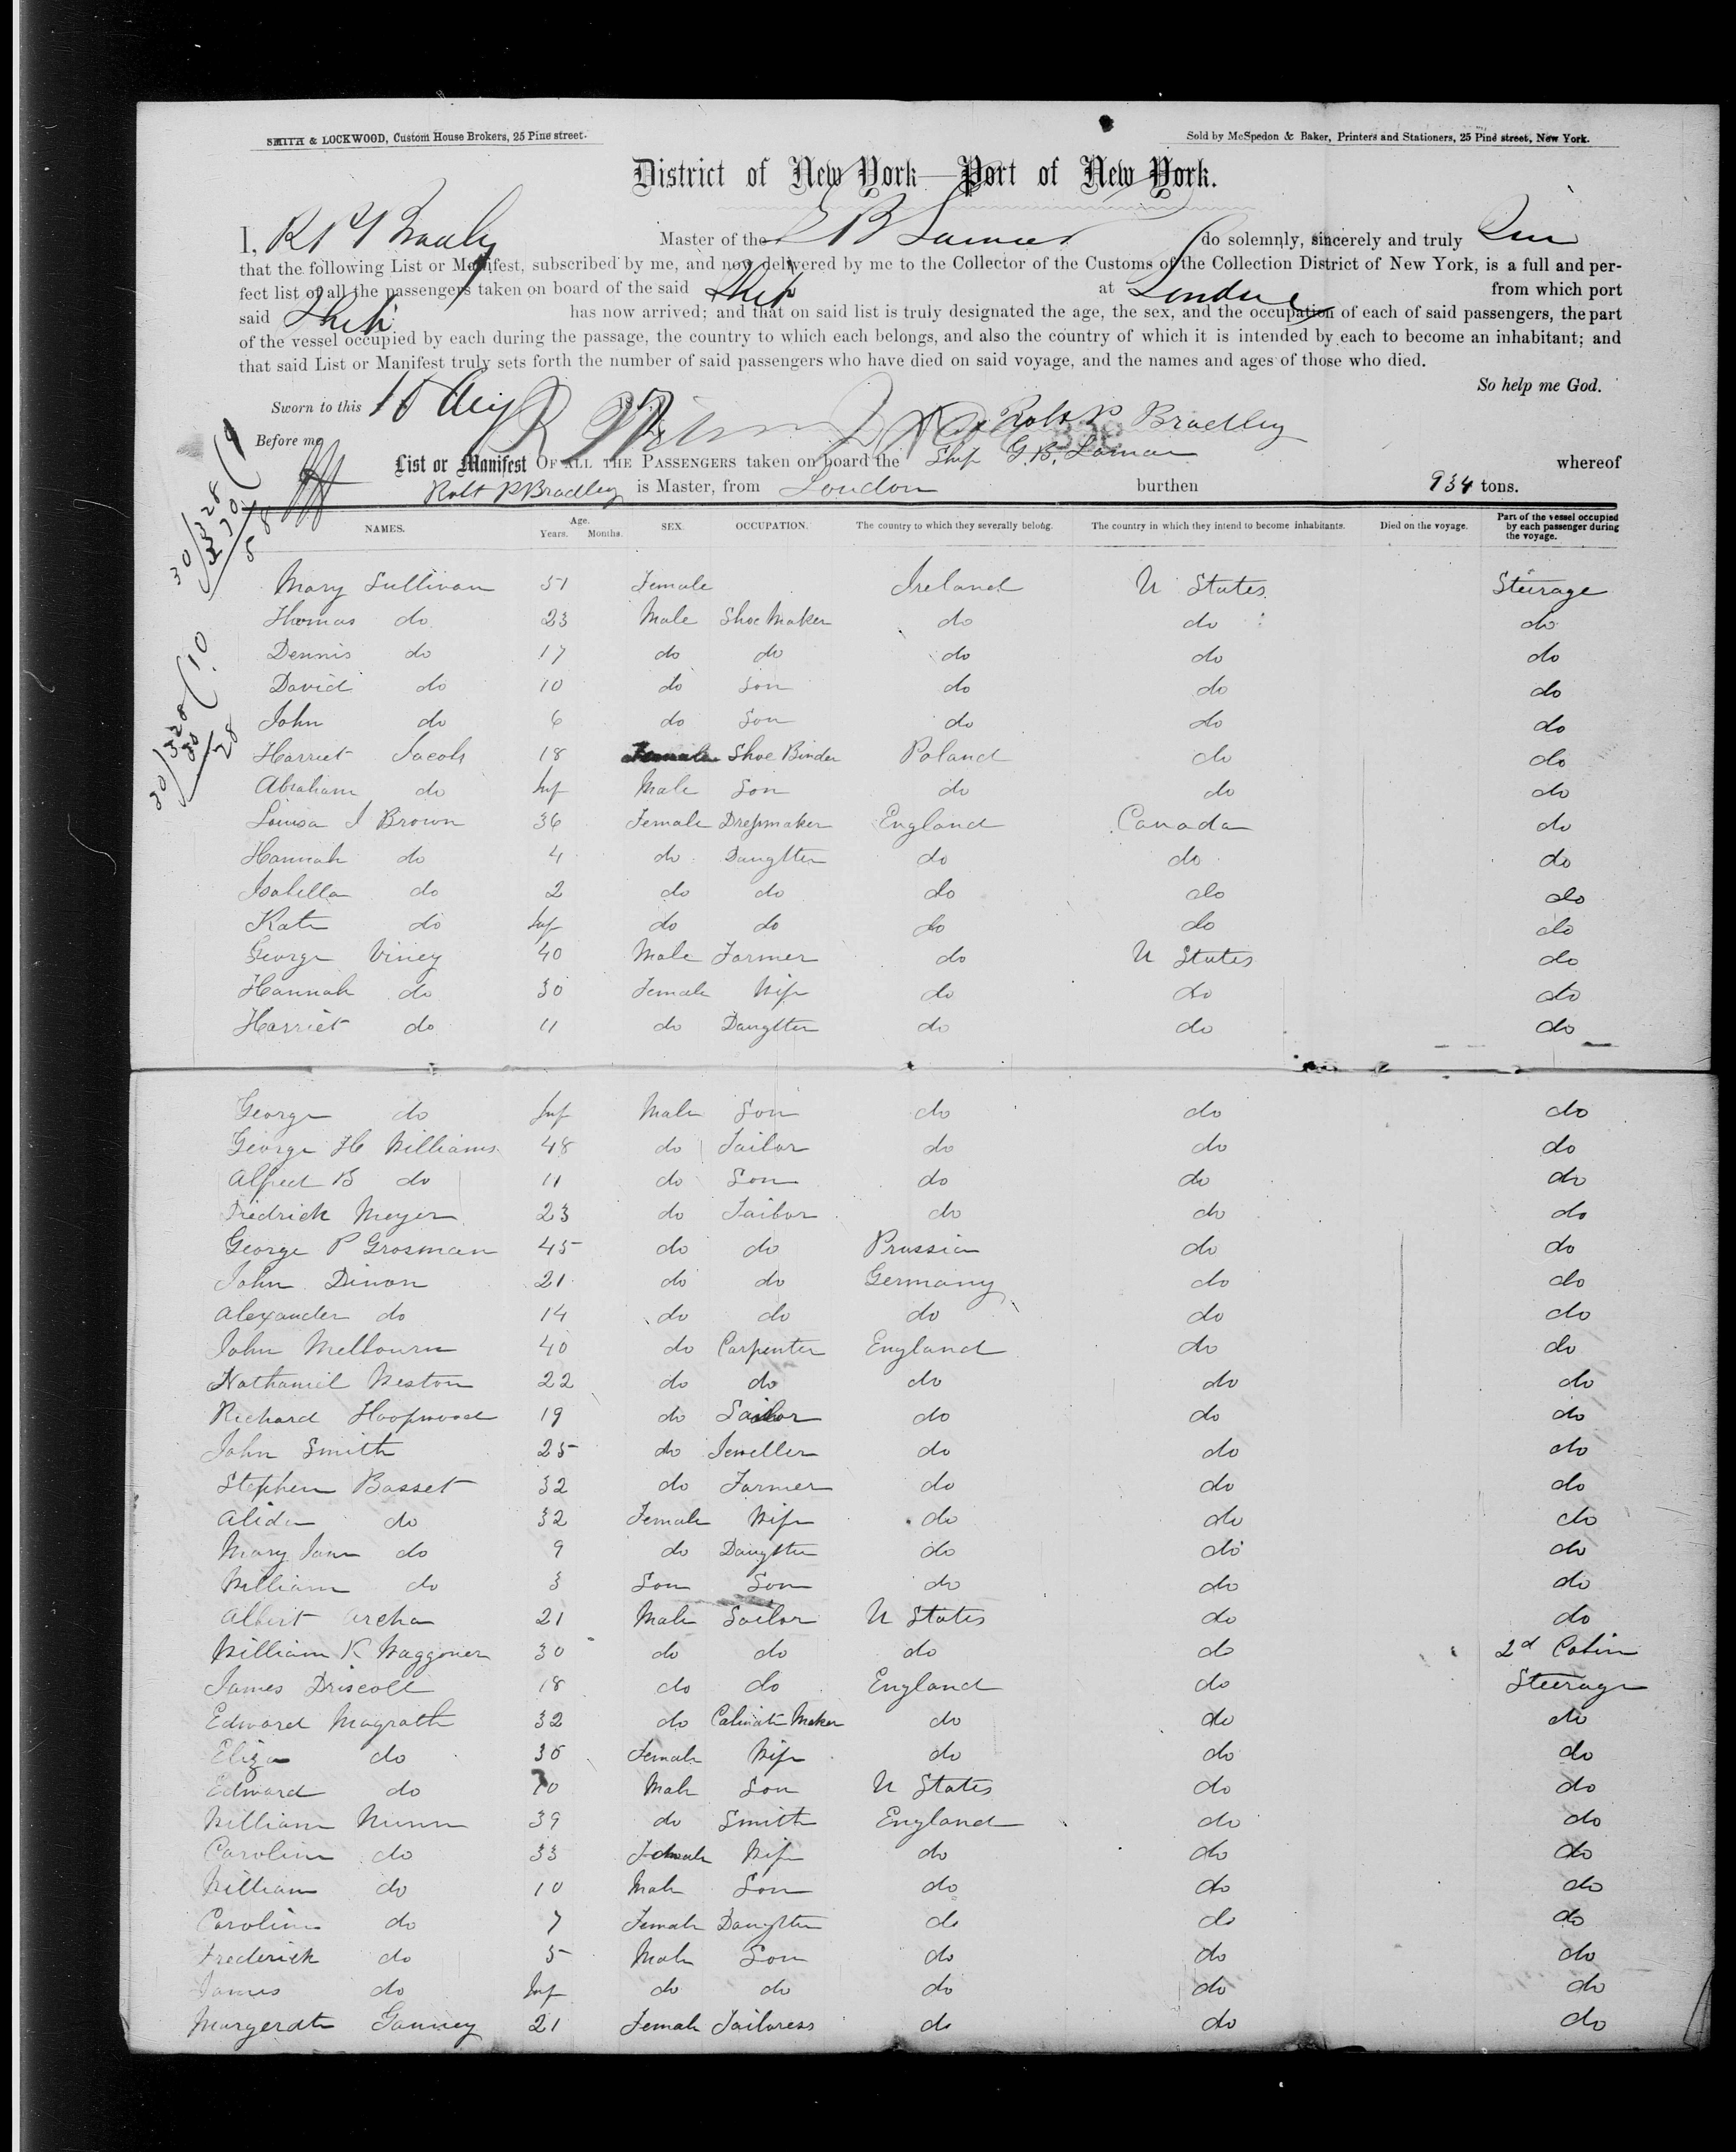 SMITH & LOCKWOOD, Custom House Brokers, 25 Pine street.
Sold by McSpedon & Baker, Printers and Stationers, 25 Pine street, New York.
District of New York—Port of New York.
I, Master of the do solemnly, sincerely and truly
that the following List or Manifest, subscribed by me, and now delivered by me to the Collector of the Customs of the Collection District of New York, is a full and per-
fect list of all the passengers taken on board of the said Ship at London from which port
said Ship has now arrived; and that on said list is truly designated the age, the sex, and the occupation of each of said passengers, the part
of the vessel occupied by each during the passage, the country to which each belongs, and also the country of which it is intended by each to become an inhabitant; and
that said List or Manifest truly sets forth the number of said passengers who have died on said voyage, and the names and ages of those who died.
So help me God.
Sworn to this Aug Robt P Bradley
Before me
List or Manifest OF ALL THE PASSENGERS taken on board the Ship G. B. Lamar whereof
Robt P Bradley is Master, from London burthen 934 tons.
NAMES. Age. Years. Months. SEX. OCCUPATION. The country to which they severally belong. The country in which they intend to become inhabitants. Died on the voyage. Part of the vessel occupied by each passenger during the voyage.
Mary Sullivan 51 Female Ireland U States Steirage
Thomas do 23 Male Shoe Maker do do do
Dennis do 17 do do do do do
David do 10 do Son do do do
John do 6 do Son do do do
Harriet Jacobs 18 Female Shoe Binder Poland do do
Abraham do Inf Male Son do do do
Louisa J Brown 36 Female Dressmaker England Canada do
Hannah do 4 do Daughter do do do
Isabella do 2 do do do do do
Kate do Inf do do do do do
George Viney 40 Male Farmer do U States do
Hannah do 30 Female Wife do do do
Harriet do 11 do Daughter do do do
George do Inf Male Son do do do
George H Williams 48 do Tailor do do do
Alfred B do 11 do Son do do do
Fredrick Meyer 23 do Tailor do do do
George P Grosman 45 do do Prussia do do
John Dinon 21 do do Germany do do
Alexander do 14 do do do do do
John Melbourn 40 do Carpenter England do do
Nathaniel Weston 22 do do do do do
Richard Hoopwood 19 do Sailor do do do
John Smith 25 do Jeweller do do do
Stephen Basset 32 do Farmer do do do
Alida do 32 Female Wife do do do
Mary Jane do 9 do Daughter do do do
William do 3 Son Son do do do
Albert Archa 21 Male Sailor U States do do
William K Waggoner 30 do do do do 2d Cabin
James Driscoll 18 do do England do Steerage
Edward Magrath 32 do Cabinate Maker do do do
Eliza do 30 Female Wife do do do
Edward do 10 Male Son U States do do
William Nunn 39 do Smith England do do
Caroline do 33 Female Wife do do do
William do 10 Male Son do do do
Caroline do 7 Female Daughter do do do
Frederick do 5 Male Son do do do
James do Inf do do do do do
Margerate Ganney 21 Female Tailoress do do do